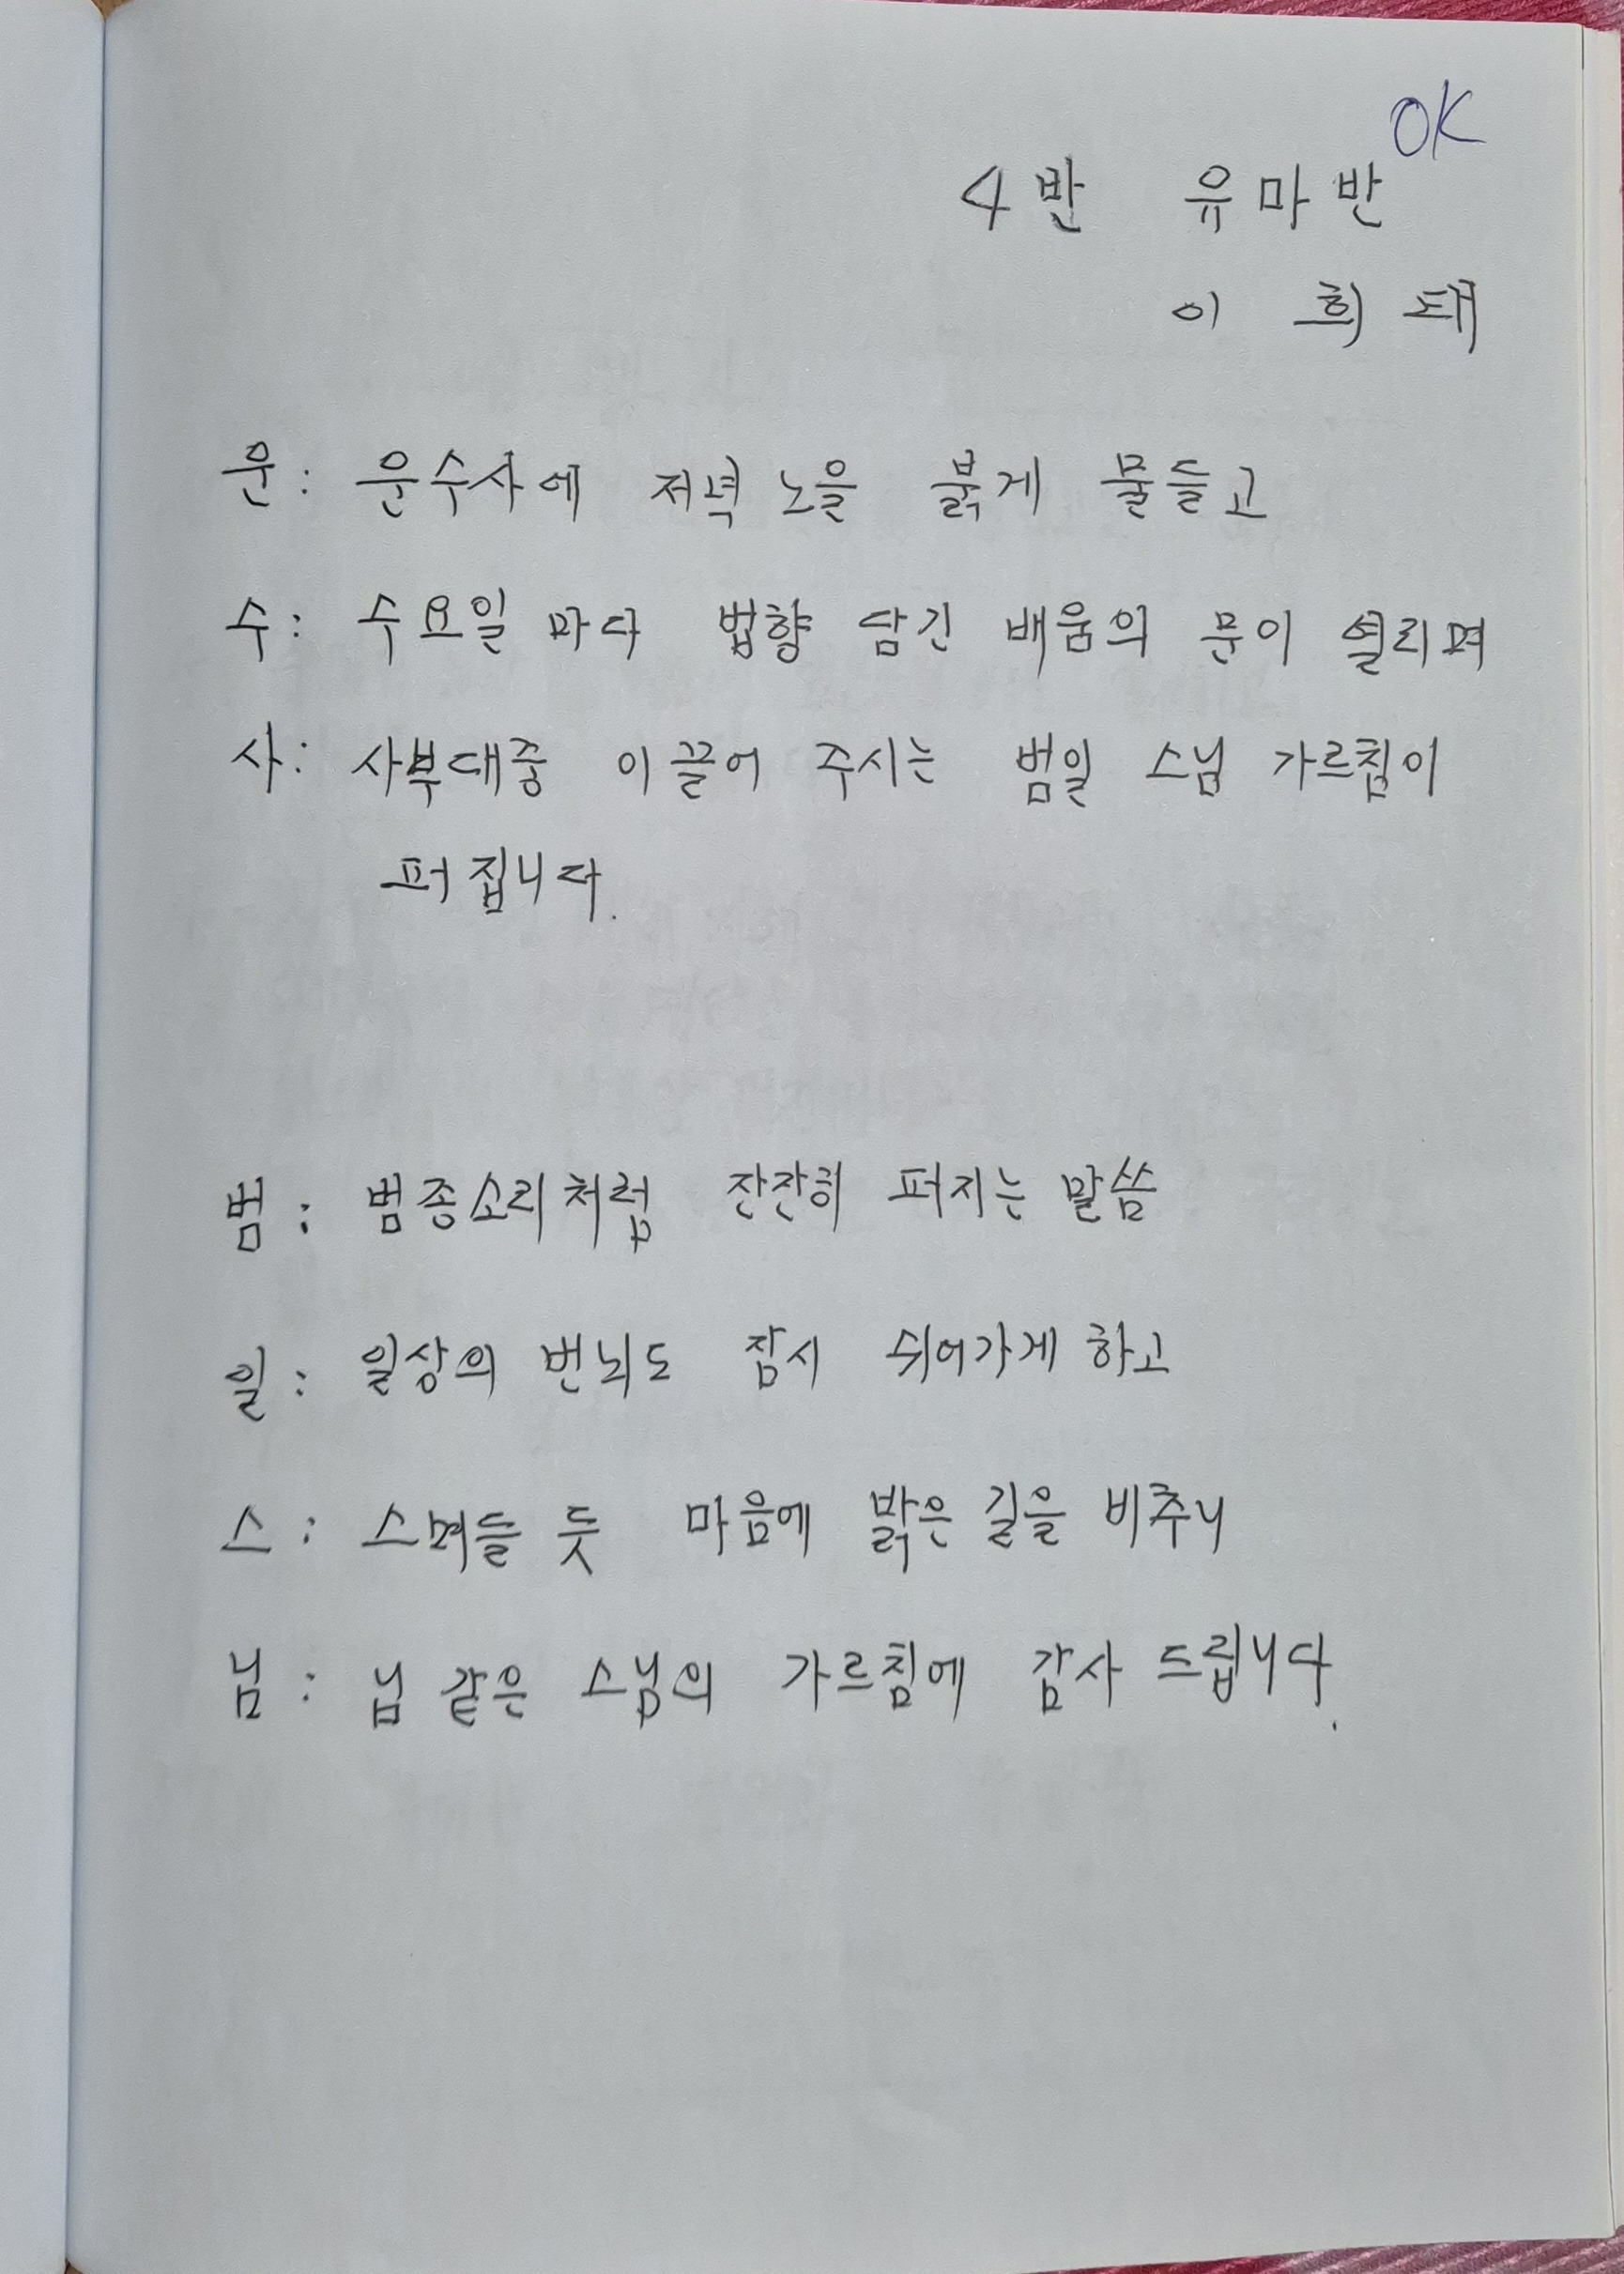 OK
4반 유마반
이 희 태
운 : 운수사에 저녁 노을 붉게 물들고
수 : 수요일 마다 법향 담긴 배움의 문이 열리며
사 : 사부대중 이끌어 주시는 범일 스님 가르침이
퍼집니다.
범 : 범종소리처럼 잔잔히 퍼지는 말씀
일 : 일상의 번뇌도 잠시 쉬어가게 하고
스 : 스며들 듯 마음에 밝은 길을 비추니
님 : 님 같은 스님의 가르침에 감사 드립니다.